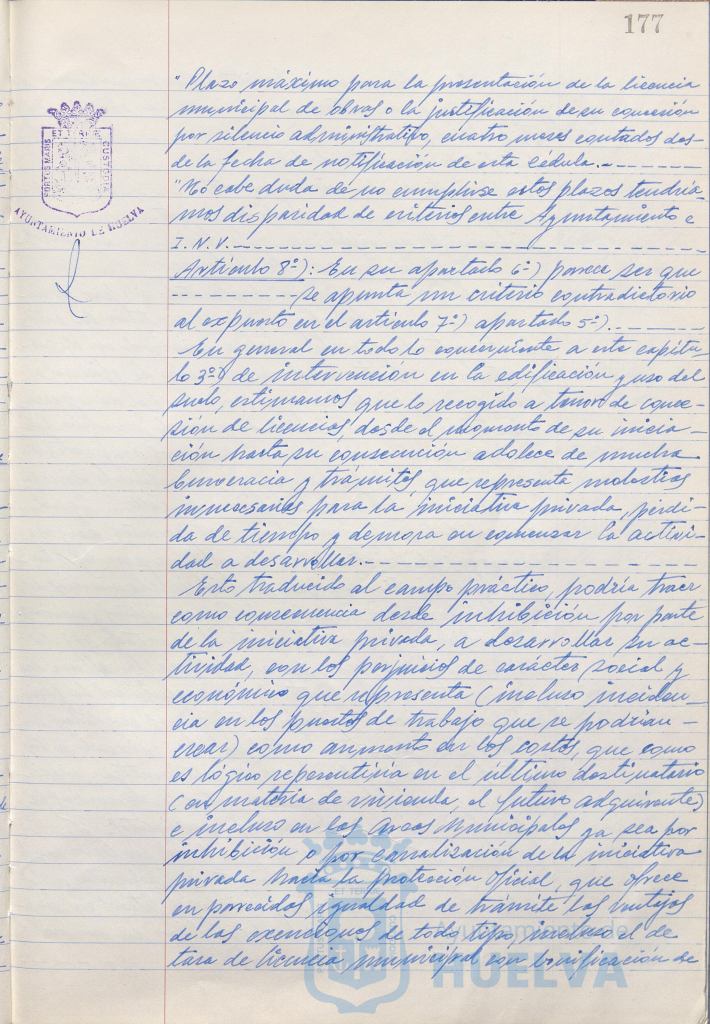 177
"Plazo máximo para la presentación de la licencia
municipal de obras o la justificación de su concesión
por silencio administrativo, cuatro meses contados des-
de la fecha de notificación de esta Cédula.
PORTUS MARIS ET TERRAE CUSTODIA
AYUNTAMIENTO DE HUELVA
"No cabe duda de no cumplirse estos plazos tendría-
mos disparidad de criterios entre Ayuntamiento e
I.N.V.
Artículo 8º): En su apartado 6º) parece ser que
se apunta un criterio contradictorio
al expuesto en el artículo 7º) apartado 5º).
En general en todo lo concerniente a este capítu-
lo 3º) de intervención en la edificación y uso del
suelo, estimamos que lo recogido a tenor de conce-
sión de licencias, desde el momento de su inicia-
ción hasta su consecución adolece de mucha
burocracia y trámites, que representa molestias
innecesarias para la iniciativa privada, pérdi-
da de tiempo y demora en comenzar la activi-
dad a desarrollar.
Esto traducido al campo práctico, podría traer
como consecuencia desde inhibición por parte
de la iniciativa privada, a desarrollar su ac-
tividad, con los perjuicios de carácter social y
económico que representa (incluso inciden-
cia en los puestos de trabajo que se podrían
crear) como aumento en los costos, que como
es lógico repercutiría en el último destinatario
(en materia de vivienda, el futuro adquirente)
e incluso en las Arcas Municipales ya sea por
inhibición o por canalización de la iniciativa
privada hacia la protección oficial, que ofrece
en parecidos igualdad de trámite las ventajas
de las exenciones de todo tipo, incluso el de
tasa de licencia municipal con bonificación de
Ayuntamiento de
HUELVA